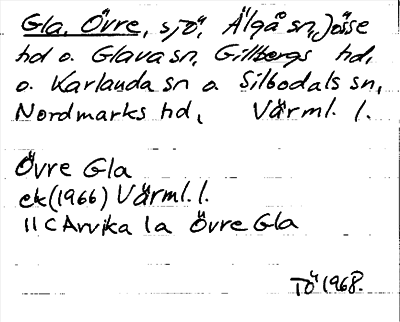 Gla, Övre, sjö, Älgå sn, Jösse
hd o. Glava sn, Gillbergs hd,
o. Karlanda sn o Silbodals sn,
Nordmarks hd, Värml. l.
Övre Gla
ek (1966) Värml. l.
11 C Arvika 1a Övre Gla
TÖ 1968.